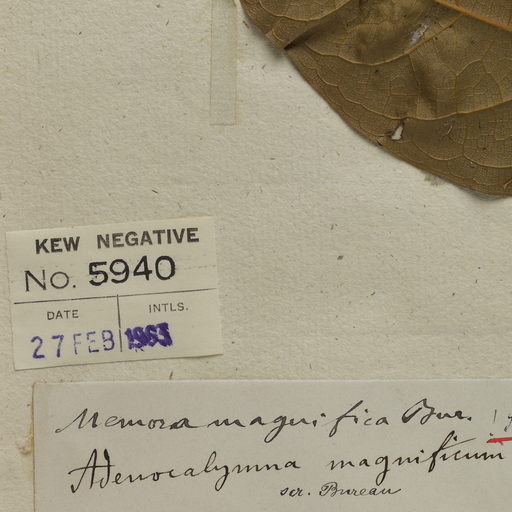 KEW NEGATIVE
No. 5940
DATE INTLS.
27 FEB 1963
Memora magnifica Bur.
Adenocalymna magnificum
scr. Bureau